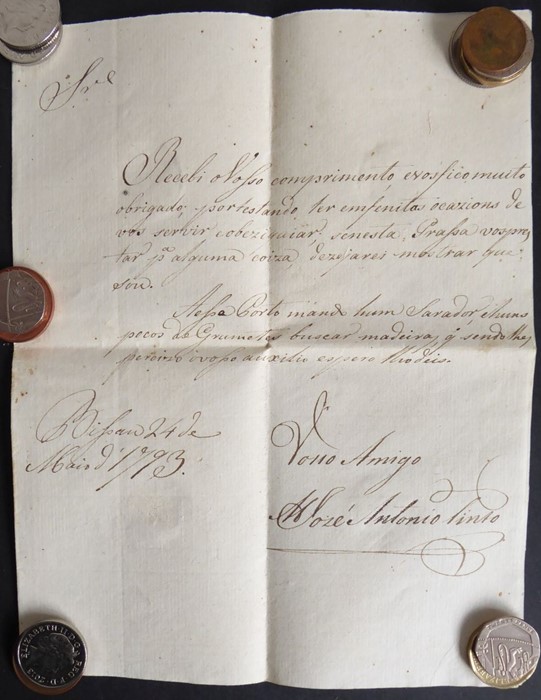 Sr.e
Recebi o Vosso comprimento, e vosfico, muito
obrigado, portestando, ter emfenitas ocazions de
vos servir e obezequiar. Senesta, Prassa vos pres
tar pa alguma coiza, dezejarei mostrar que
sou.
Aesse Porto mando hum Sarador, e huns
pocos de Grumetes buscar madeira, q sendo lhe,
percizo o vosso auxilio espero lho deis.
Bissau 24 de
Maio d' 1793.
Vosso Amigo
Jozé Antonio Pinto
ELIZABETH II D G REG F D